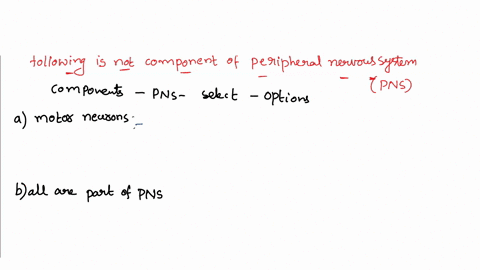 following is not component of peripheral nervous system
(PNS)
Components - PNS - select - options
a) motor neurons:-
b) all are part of PNS